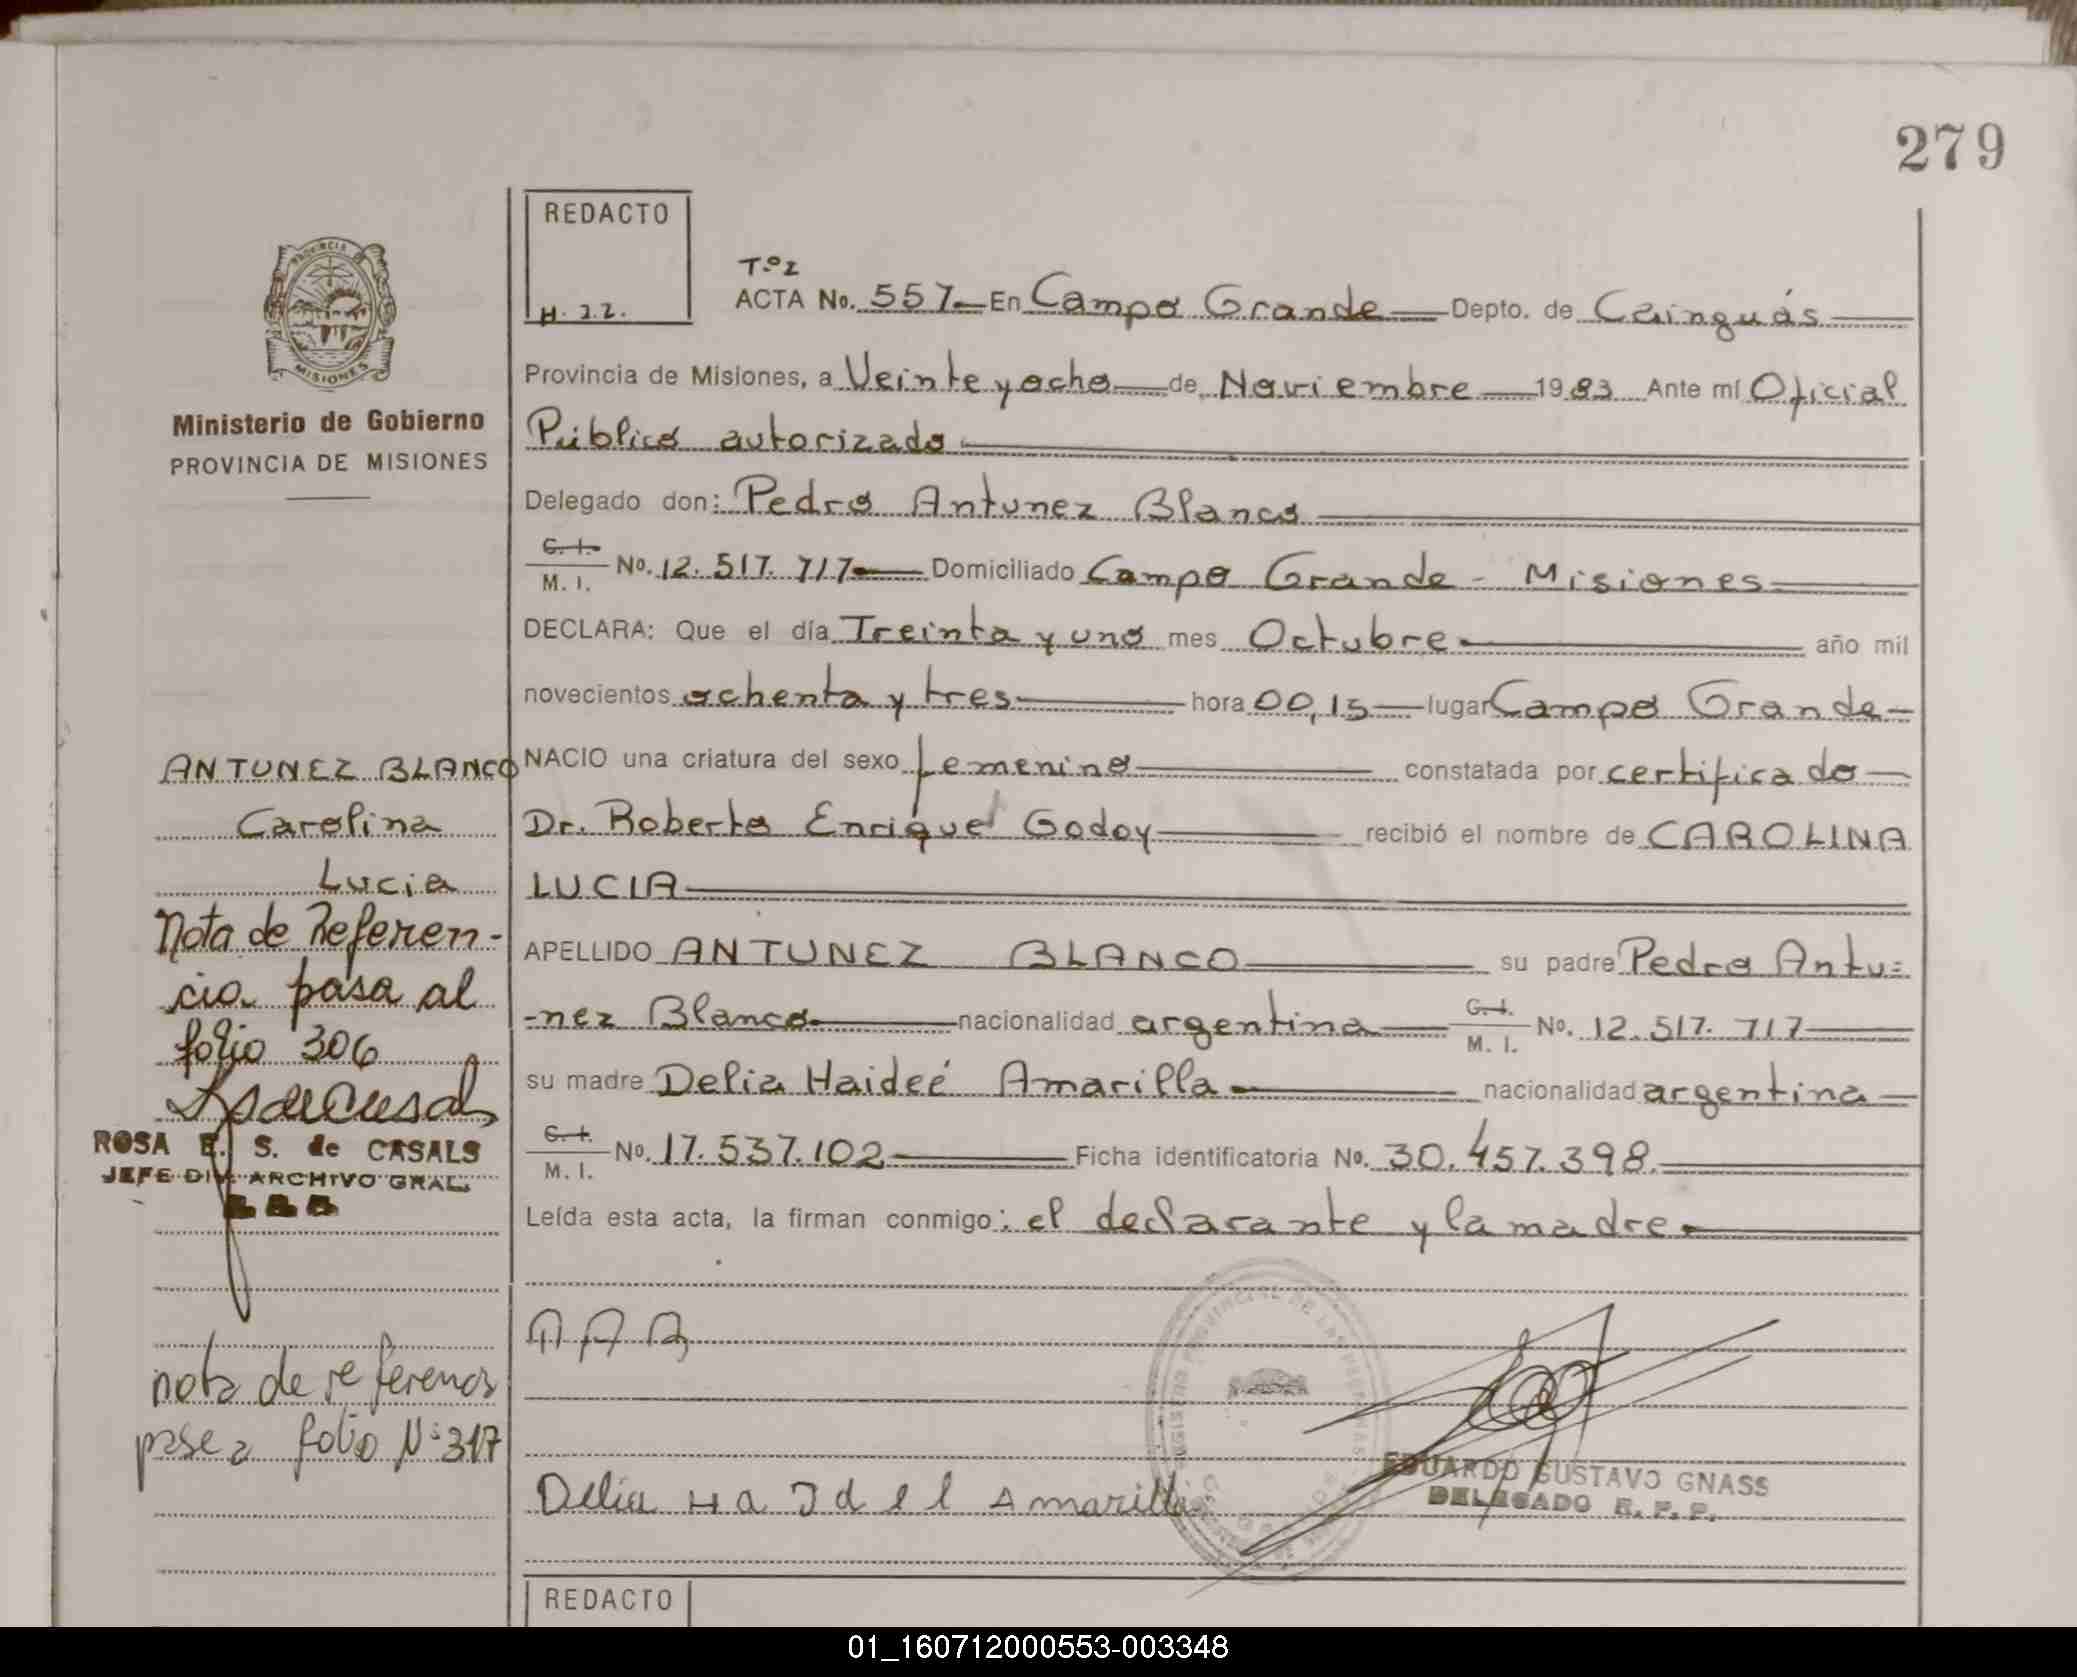 279
REDACTO
H. 22.
Tº I
ACTA No. 557 En Campo Grande Depto. de Cainguás
Provincia de Misiones, a Veinte y ocho de Noviembre 1983 Ante mí Oficial
Público autorizado
Delegado don: Pedro Antunez Blanco
C. I. M. I. No. 12.517.717 Domiciliado Campo Grande - Misiones
DECLARA: Que el día Treinta y uno mes Octubre año mil
novecientos ochenta y tres hora 00,15 lugar Campo Grande
NACIO una criatura del sexo femenino constatada por certificado
Dr. Roberto Enrique Godoy recibió el nombre de CAROLINA
LUCIA
APELLIDO ANTUNEZ BLANCO su padre Pedro Antu=
-nez Blanco nacionalidad argentina C. I. M. I. No. 12.517.717
su madre Delia Haideé Amarilla nacionalidad argentina
C. I. M. I. No. 17.537.102 Ficha identificatoria No. 30.457.398
Leída esta acta, la firman conmigo: el declarante y la madre
Delia Haidel Amarilla
REGISTRO PROVINCIAL DE LAS PERSONAS
EDUARDO GUSTAVO GNASS
DELEGADO R. P. P.
REDACTO
PROVINCIA
MISIONES
Ministerio de Gobierno
PROVINCIA DE MISIONES
ANTUNEZ BLANCO
Carolina
Lucia
Nota de Referen-
cia pasa al
folio 306
ROSA E. S. de CASALS
JEFE DIV. ARCHIVO GRAL.
nota de referencia
pase a folio Nº 317
01_160712000553-003348